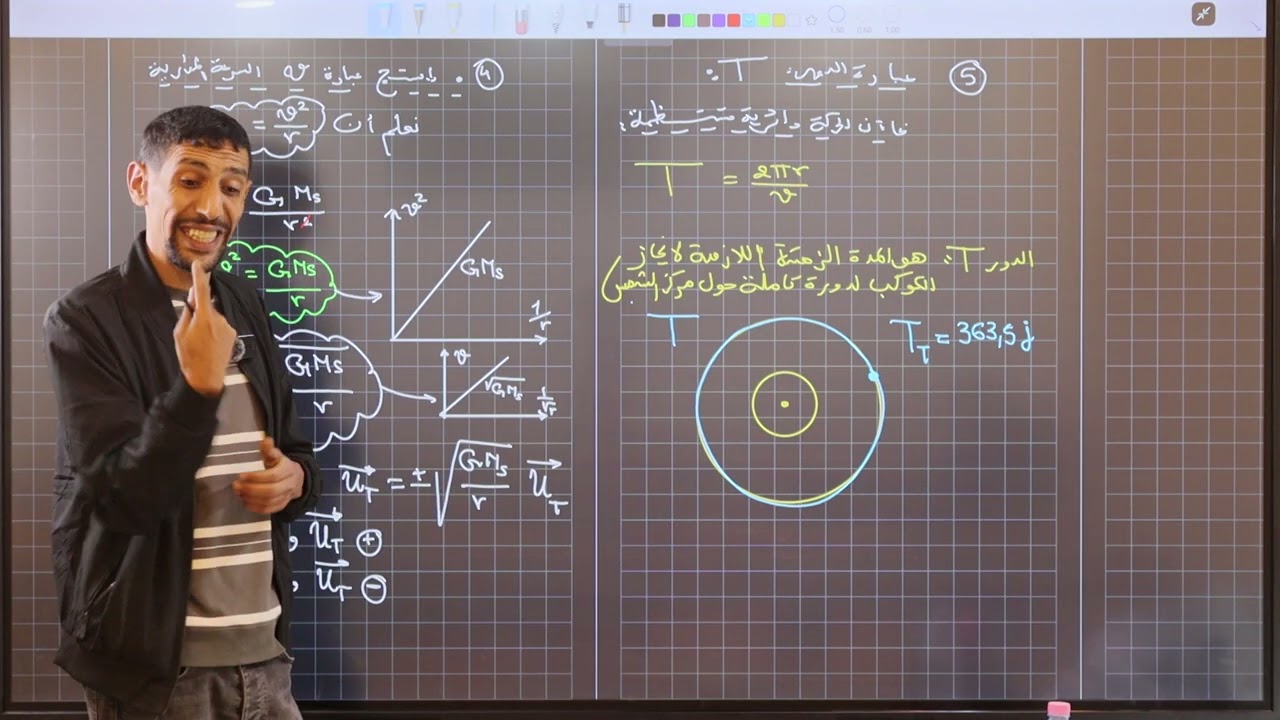 ④ . استنتج عبارة v السرعة المدارية
نعلم أن = v²/r
G Ms / r²
v² = G Ms / r
v²
GMs
1/r
G Ms / r
v
√GMs
1/√r
u⃗T = ± √(G Ms / r) u⃗T
, u⃗T ⊕
, u⃗T ⊖
⑤ عبارة الدور T:
T = 2πr / v
الدور T: هو المدة الزمنية اللازمة لانجاز
الكوكب لدورة كاملة حول مركز الشمس
T
T_T = 363,5 j